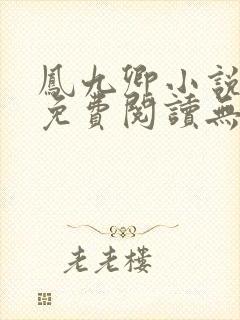 鳳九卿小說
免費閱讀無
老老樓